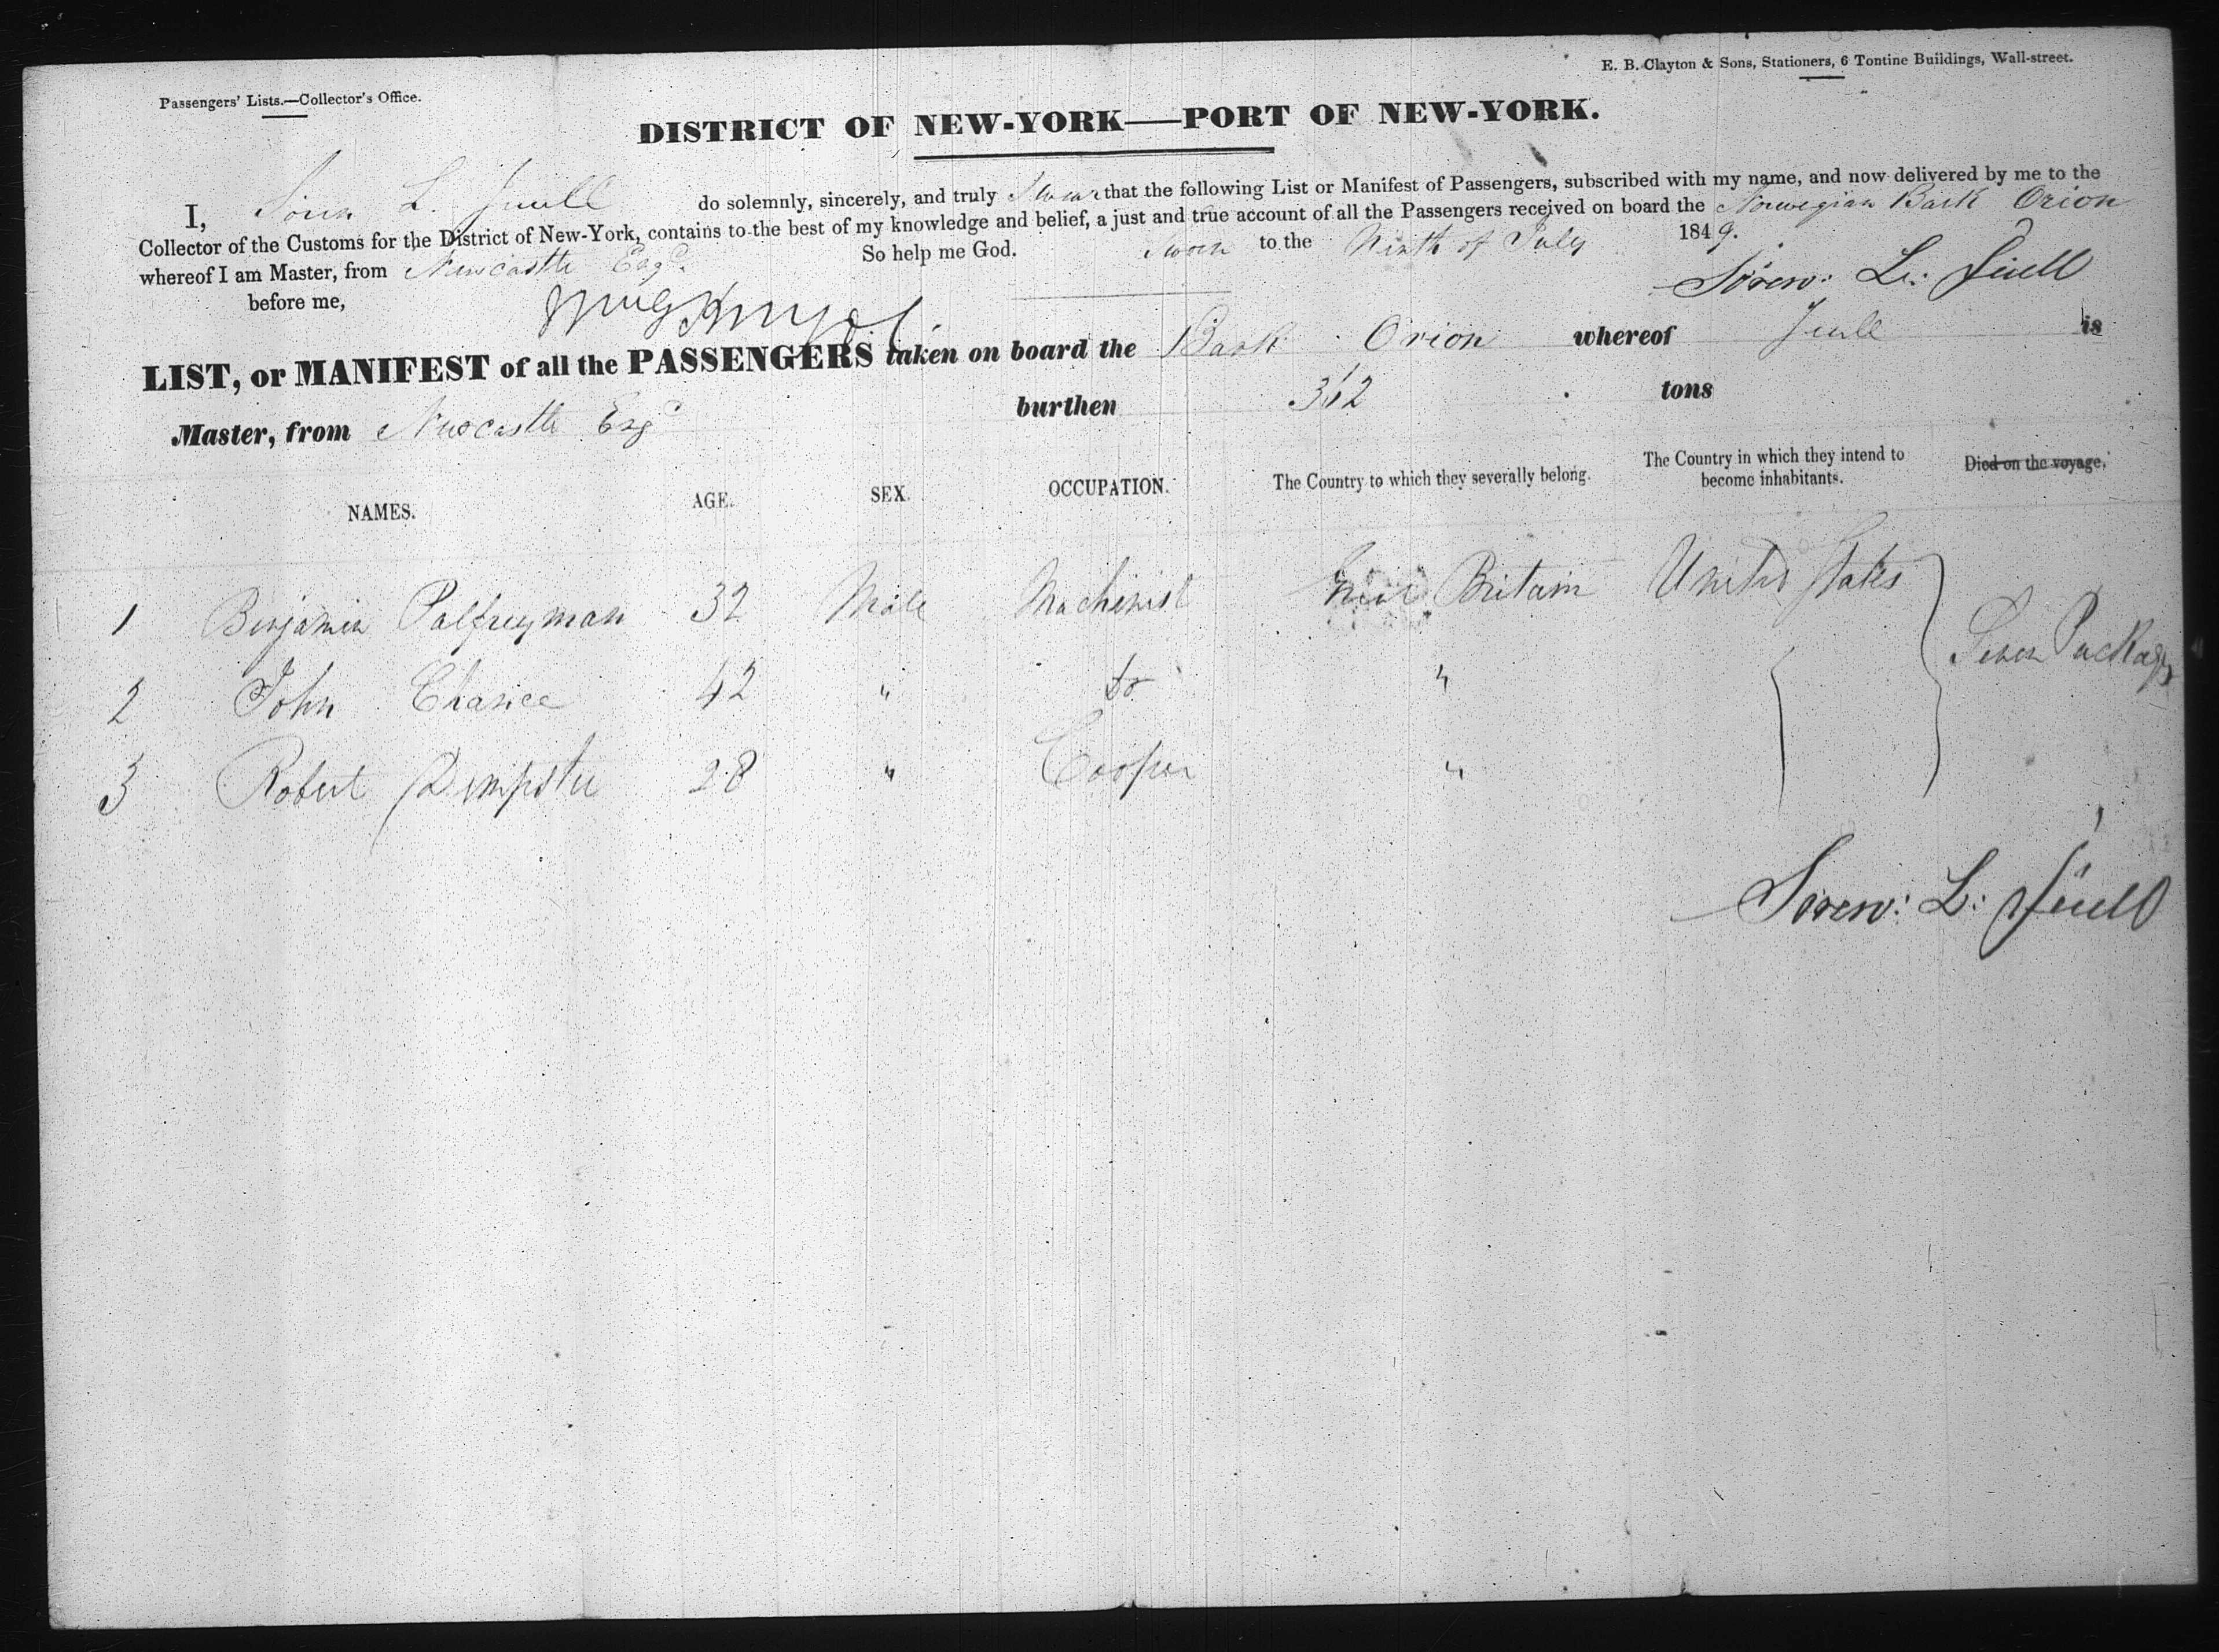 Passengers' Lists.—Collector's Office.
E. B. Clayton & Sons, Stationers, 6 Tontine Buildings, Wall-street.
DISTRICT OF NEW-YORK—PORT OF NEW-YORK.
I, Sören L. Juell do solemnly, sincerely, and truly Swear that the following List or Manifest of Passengers, subscribed with my name, and now delivered by me to the
Collector of the Customs for the District of New-York, contains to the best of my knowledge and belief, a just and true account of all the Passengers received on board the Norwegian Bark Orion
whereof I am Master, from Newcastle Engd. So help me God. Sworn to the Ninth of July 1849.
before me, Sören: L: Juell
LIST, or MANIFEST of all the PASSENGERS taken on board the Bark Orion whereof Juell is
Master, from Newcastle Engd burthen 312 tons
NAMES. AGE. SEX. OCCUPATION. The Country to which they severally belong. The Country in which they intend to become inhabitants. Died on the voyage.
1 Benjamin Palfreyman 32 Male Machinist Great Britain United States
Seven Packages
2 John Chance 42 " do "
3 Robert Dempster 28 " Cooper "
Sören: L: Juell